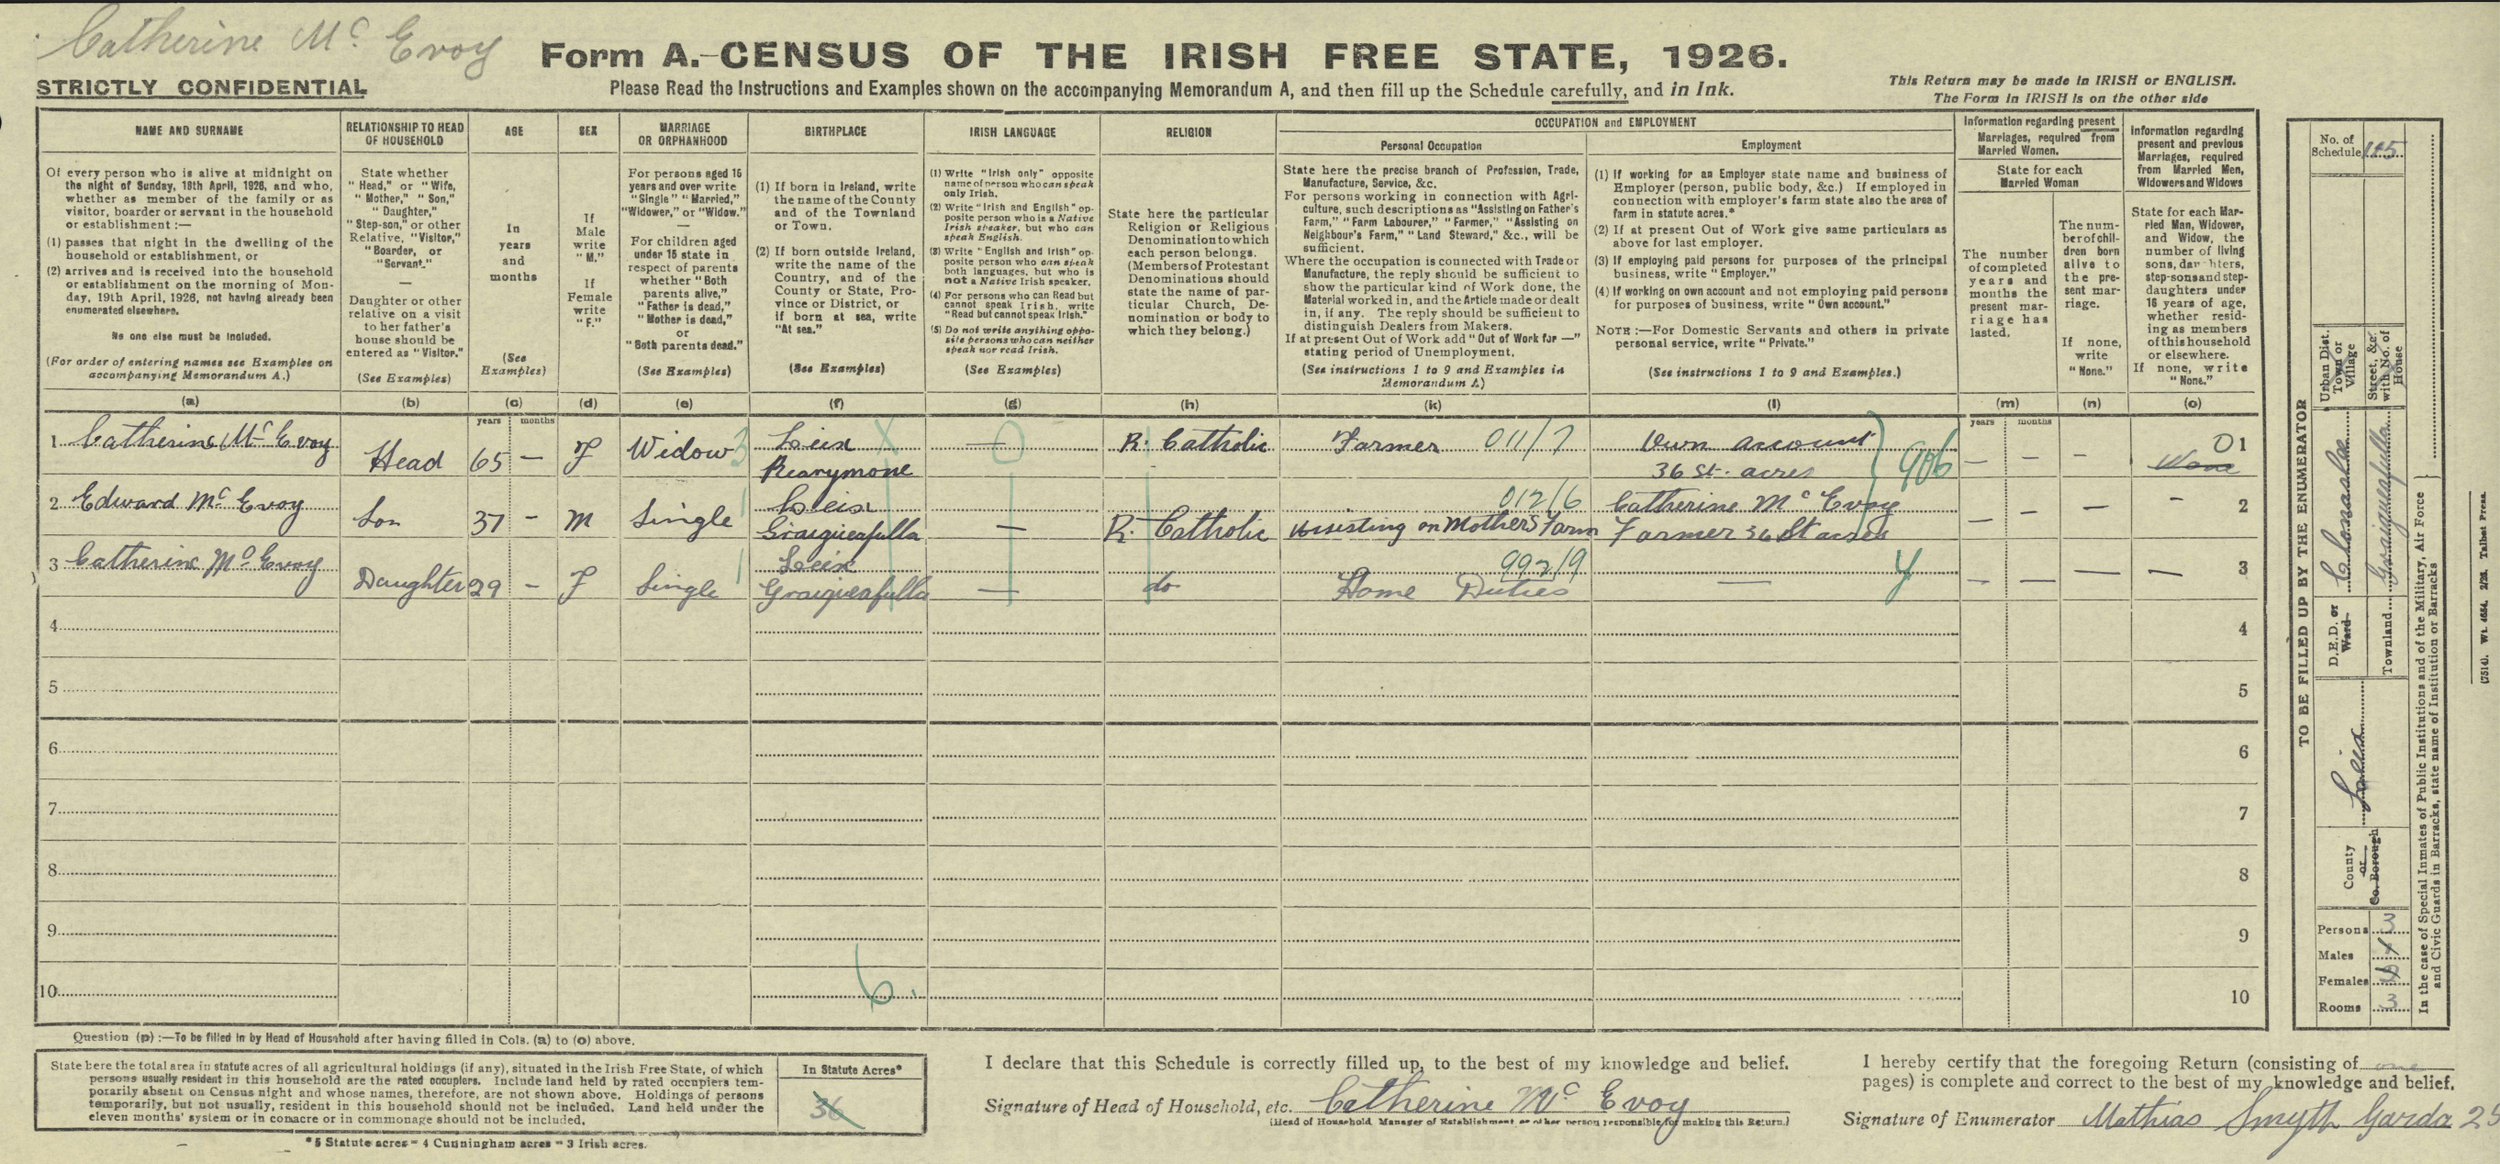 Catherine Mc Evoy
Form A.—CENSUS OF THE IRISH FREE STATE, 1926.
STRICTLY CONFIDENTIAL
Please Read the Instructions and Examples shown on the accompanying Memorandum A, and then fill up the Schedule carefully, and in Ink.
This Return may be made in IRISH or ENGLISH.
The Form in IRISH is on the other side
NAME AND SURNAME
Of every person who is alive at midnight on
the night of Sunday, 18th April, 1926, and who,
whether as member of the family or as
visitor, boarder or servant in the household
or establishment :—
(1) passes that night in the dwelling of the
household or establishment, or
(2) arrives and is received into the household
or establishment on the morning of Mon-
day, 19th April, 1926, not having already been
enumerated elsewhere.
No one else must be included.
(For order of entering names see Examples on
accompanying Memorandum A.)
(a)
RELATIONSHIP TO HEAD
OF HOUSEHOLD
State whether
"Head," or "Wife,
"Mother," "Son,"
"Daughter,"
"Step-son," or other
Relative, "Visitor,"
"Boarder, or
"Servant."
Daughter or other
relative on a visit
to her father's
house should be
entered as "Visitor."
(See Examples)
(b)
AGE
In
years
and
months
(See
Examples)
(c)
SEX
If
Male
write
"M."
If
Female
write
"F."
(d)
MARRIAGE
OR ORPHANHOOD
For persons aged 15
years and over write
"Single" "Married,"
"Widower," or "Widow."
For children aged
under 15 state in
respect of parents
whether "Both
parents alive,"
"Father is dead,"
"Mother is dead,"
or
"Both parents dead."
(See Examples)
(e)
BIRTHPLACE
(1) If born in Ireland, write
the name of the County
and of the Townland
or Town.
(2) If born outside Ireland,
write the name of the
Country, and of the
County or State, Pro-
vince or District, or
if born at sea, write
"At sea."
(See Examples)
(f)
IRISH LANGUAGE
(1) Write "Irish only" opposite
name of person who can speak
only Irish.
(2) Write "Irish and English" op-
posite person who is a Native
Irish speaker, but who can
speak English.
(3) Write "English and Irish" op-
posite person who can speak
both languages, but who is
not a Native Irish speaker.
(4) For persons who can Read but
cannot speak Irish, write
"Read but cannot speak Irish."
(5) Do not write anything oppo-
site persons who can neither
speak nor read Irish.
(See Examples)
(g)
RELIGION
State here the particular
Religion or Religious
Denomination to which
each person belongs.
(Members of Protestant
Denominations should
state the name of par-
ticular Church, De-
nomination or body to
which they belong.)
(h)
OCCUPATION and EMPLOYMENT
Personal Occupation
State here the precise branch of Profession, Trade,
Manufacture, Service, &c.
For persons working in connection with Agri-
culture, such descriptions as "Assisting on Father's
Farm," "Farm Labourer," "Farmer," "Assisting on
Neighbour's Farm," "Land Steward," &c., will be
sufficient.
Where the occupation is connected with Trade or
Manufacture, the reply should be sufficient to
show the particular kind of Work done, the
Material worked in, and the Article made or dealt
in, if any. The reply should be sufficient to
distinguish Dealers from Makers.
If at present Out of Work add "Out of Work for —"
stating period of Unemployment.
(See instructions 1 to 9 and Examples in
Memorandum A)
(k)
Employment
(1) If working for an Employer state name and business of
Employer (person, public body, &c.) If employed in
connection with employer's farm state also the area of
farm in statute acres.*
(2) If at present Out of Work give same particulars as
above for last employer.
(3) If employing paid persons for purposes of the principal
business, write "Employer."
(4) If working on own account and not employing paid persons
for purposes of business, write "Own account."
NOTE :—For Domestic Servants and others in private
personal service, write "Private."
(See instructions 1 to 9 and Examples.)
(l)
Information regarding present
Marriages, required from
Married Women.
State for each
Married Woman
The number
of completed
years and
months the
present mar-
riage has
lasted.
(m)
The num-
ber of chil-
dren born
alive to
the pre-
sent mar-
riage.
If none,
write
"None."
(n)
Information regarding
present and previous
Marriages, required
from Married Men,
Widowers and Widows
State for each Mar-
ried Man, Widower,
and Widow, the
number of living
sons, daughters,
step-sons and step-
daughters under
16 years of age,
whether resid-
ing as members
of this household
or elsewhere.
If none, write
"None."
(o)
years months years months
1 Catherine Mc Evoy Head 65 — F Widow 3 Leix Rearymone — 0 R. Catholic Farmer 011/7 Own account 36 St. acres 906 — — — None 0 1
2 Edward Mc Evoy Son 37 — M Single 1 Leix Graiguafulla — R. Catholic 012/6 Assisting on Mothers Farm Catherine Mc Evoy Farmer 36 St acres — — — — 2
3 Catherine Mc Evoy Daughter 29 — F Single 1 Leix Graiguafulla — do 992/9 Home Duties — y — — — — 3
4 4
5 5
6 6
7 7
8 8
9 9
10 6. 10
Question (p) :—To be filled in by Head of Household after having filled in Cols. (a) to (o) above.
State here the total area in statute acres of all agricultural holdings (if any), situated in the Irish Free State, of which
persons usually resident in this household are the rated occupiers. Include land held by rated occupiers tem-
porarily absent on Census night and whose names, therefore, are not shown above. Holdings of persons
temporarily, but not usually, resident in this household should not be included. Land held under the
eleven months' system or in conacre or in commonage should not be included.
In Statute Acres*
36
*5 Statute acres = 4 Cunningham acres = 3 Irish acres.
I declare that this Schedule is correctly filled up, to the best of my knowledge and belief.
Signature of Head of Household, etc. Catherine Mc Evoy
(Head of Household, Manager of Establishment or other person responsible for making this Return.)
I hereby certify that the foregoing Return (consisting of one
pages) is complete and correct to the best of my knowledge and belief.
Signature of Enumerator Mathias Smyth Garda 25
TO BE FILLED UP BY THE ENUMERATOR
No. of
Schedule
Urban Dist.
Town or
Village
Street, &c.
with No. of
House
D.E.D. or
Ward Clonaslee
Townland Graiguafulla
County
or
Co. Borough Leix
Persons 3
Males
Females
Rooms 3
In the case of Special Inmates of Public Institutions and of the Military, Air Force
and Civic Guards in Barracks, state name of Institution or Barracks
(7514). Wt. 4654. 2/26. Talbot Press.